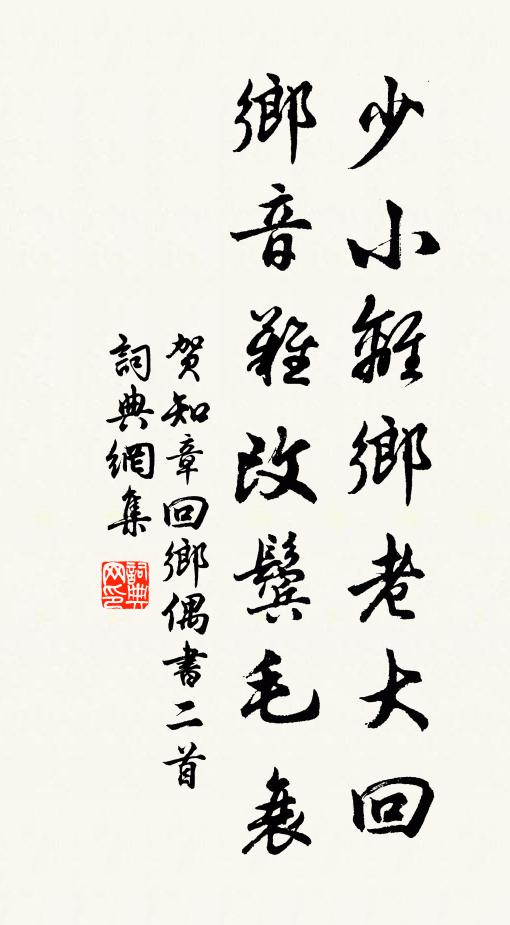 少小離鄉老大回
鄉音難改鬢毛衰
贺知章回鄉偶書二首
詞典網集
詞典
网印